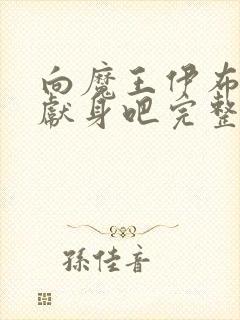 向魔王伊布
献身吧完整
孫佳音